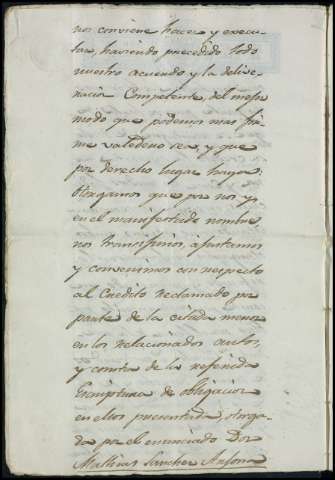 nos conviene hacer y execu-
tar, haviendo precedido todo
nuestro acuerdo y la delive-
racion Competente, del mejor
modo que podemos mas fir-
me valedero sea, y que
por derecho lugar haya:
Otorgamos que por nos y
en el manifestado nombre,
nos transijimos, ajustamos
y convenimos con respecto
al Credito reclamado por
parte de la citada menor
en los relacionados autos,
y consta de la referida
Escriptura de obligacion
en ellos presentada, otorga-
da por el enunciado Don
Mathias Sanchez